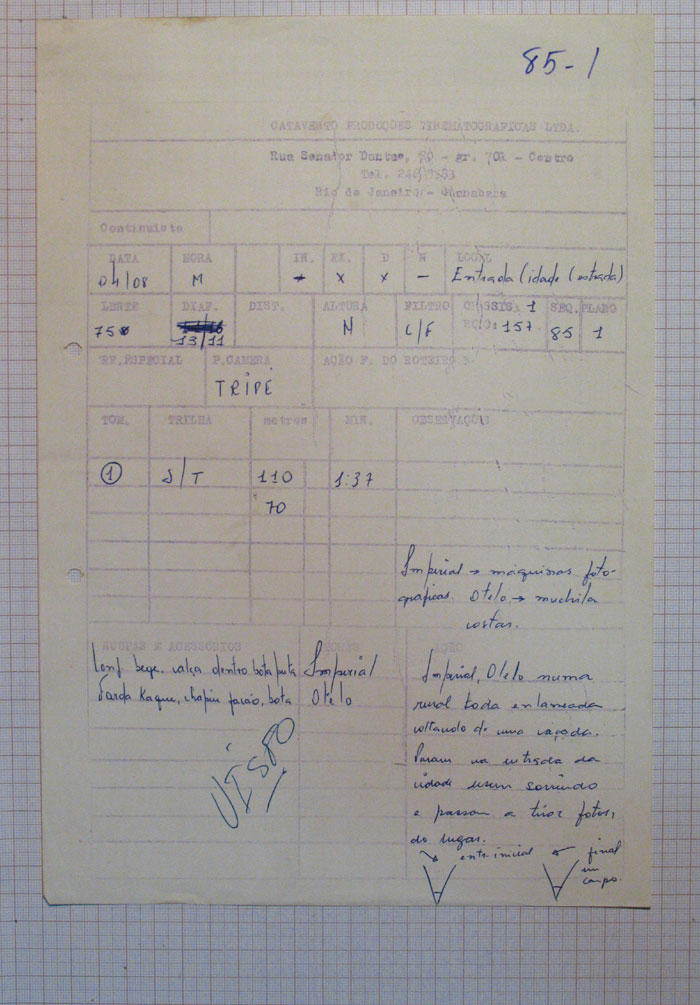 85-1
CATAVENTO PRODUÇÕES CINEMATOGRAFICAS LTDA.
Rua Senador Dantas, 80 - gr. 701 - Centro
Tel.
Rio de Janeiro - Guanabara
Continuista
DATA HORA IN. EX. D N LOCAL
04/08 M x x - Entrada Cidade (estrada)
LENTE DIAF. DIST. ALTURA FILTRO CHASSIS 1 SEQ. PLANO
75 13/11 N C/F 157 85 1
EF. ESPECIAL P. CAMERA AÇÃO P. DO ROTEIRO
TRIPÉ
TOM. TRILHA metros MIN. OBSERVAÇÕES
1 S/T 110 1:37
70
Imperial → máquinas foto-
gráficas. Otelo → mochila
costas.
ROUPAS E ACESSÓRIOS AÇÃO
bege, calça dentro bota preta Imperial
Farda Kaque, chapéu, bota Otelo
VISÃO
Imperial, Otelo numa
rural toda enlameada
voltando de uma caçada.
Param na entrada da
cidade sorrindo
e passam a tirar fotos,
do lugar.
inicial final
em
campo.